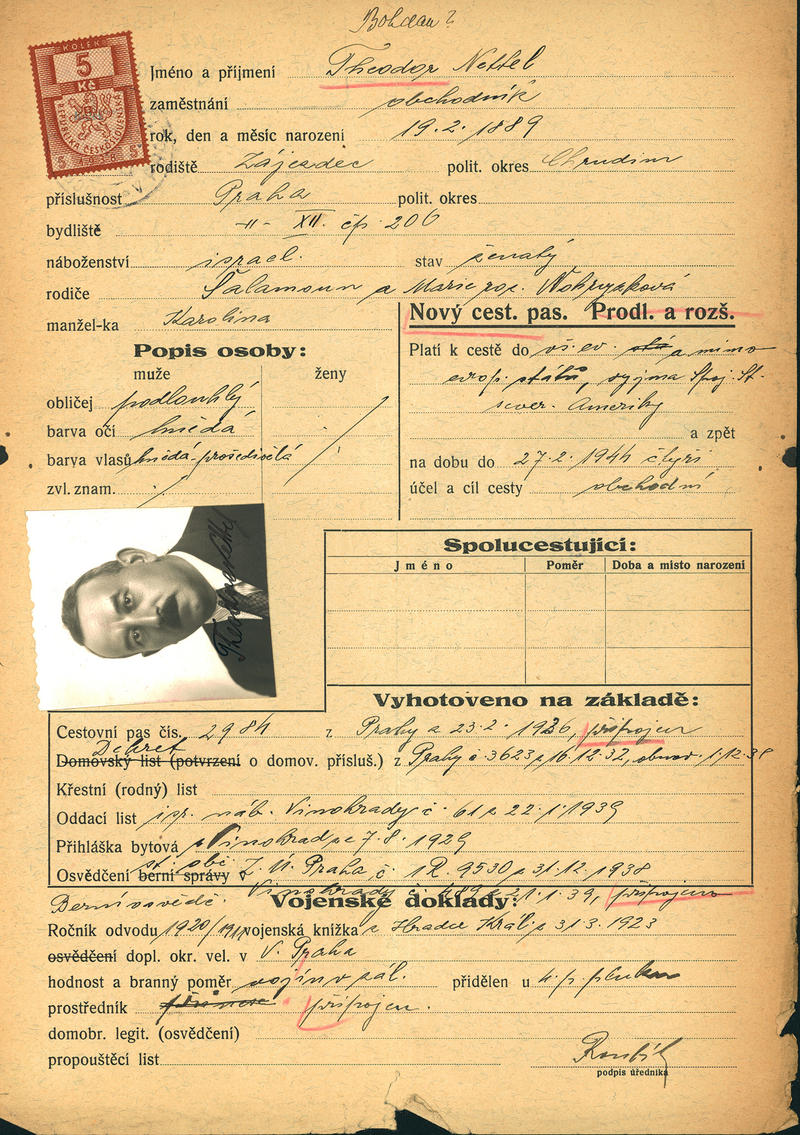 Bohdan?
KOLEK
5
Kč
REPUBLIKA ČESKOSLOVENSKÁ
5 1938 5
Jméno a příjmení Theodor Nettel
zaměstnání obchodník
rok, den a měsíc narození 19. 2. 1889
rodiště Zájezdec polit. okres Chrudim
příslušnost Praha polit. okres
bydliště -"- XII. čp. 206
náboženství israel. stav ženatý
rodiče Šalamoun a Marie roz.
manžel-ka Karolina
Nový cest. pas. Prodl. a rozš.
Popis osoby:
muže ženy
obličej podlouhlý
barva očí hnědá
barva vlasů hnědá-prošedivělá
zvl. znam.
Platí k cestě do vš. ev. a mimo
evrop. států, vyjma Spoj. St.
sever. Ameriky
a zpět
na dobu do 27. 2. 1944 čtyři
účel a cíl cesty obchodní
Theodor Nettel
Spolucestující:
Jméno Poměr Doba a místo narození
Vyhotoveno na základě:
Cestovní pas čís. 2984 z Prahy z 23. 2. 1936, připojen
Dekret
Domovský list (potvrzení o domov. přísluš.) z Prahy č. 3623 z 16. 12. 32, 1. 12. 38
Křestní (rodný) list
Oddací list isr. náb. Vinohrady č. 61 z 22. 1. 1939
Přihláška bytová z Vinohrad ze 7. 8. 1929
st. obč.
Osvědčení berní správy z Z. Ú. Praha č. 9530 z 31. 12. 1938
Berní osvědč. Vinohrady č. 489 z 21. 1. 39, připojeno
Vojenské doklady:
Ročník odvodu 1920/ vojenská knížka z Hradce Král. z 31. 3. 1923
osvědčení dopl. okr. vel. v V. Praha
hodnost a branný poměr vojín v zál. přidělen u 4. p. pluku
prostředník připojen.
domobr. legit. (osvědčení)
propouštěcí list
podpis úředníka